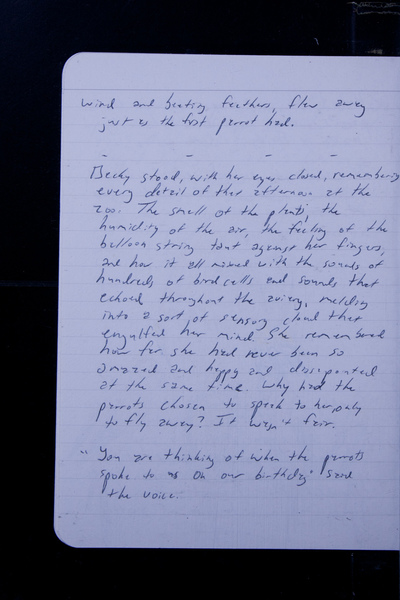 wind and beating feathers, flew away
just as the first parrot had.
- - - -
Becky stood, with her eyes closed, remembering
every detail of that afternoon at the
zoo. The smell of the plants, the
humidity of the air, the feeling of the
balloon string taut against her fingers,
and how it all mixed with the sounds of
hundreds of bird calls and sounds that
echoed throughout the aviary, melding
into a sort of sensory cloud that
engulfed her mind. She remembered
how far she had never been so
amazed and happy and dissapointed
at the same time. Why had the
parrots chosen to speak to her only
to fly away? It wasn't fair.
"You are thinking of when the parrots
spoke to us on our birthday" said
the voice.